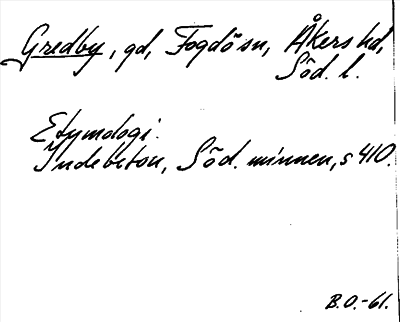 Gredby, gd, Fogdö sn, Åkers hd,
Söd. l.
Etymologi.
Indebetou, Söd. minnen, s 410.
B.O.-61.